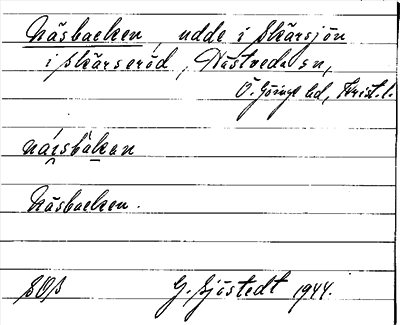 Näsbacken, udde i Skärsjön
i Skärseröd, Hästveda sn,
Ö. Göinge hd, Krist. l.
Näsbacken.
SOS G. Sjöstedt 1944.